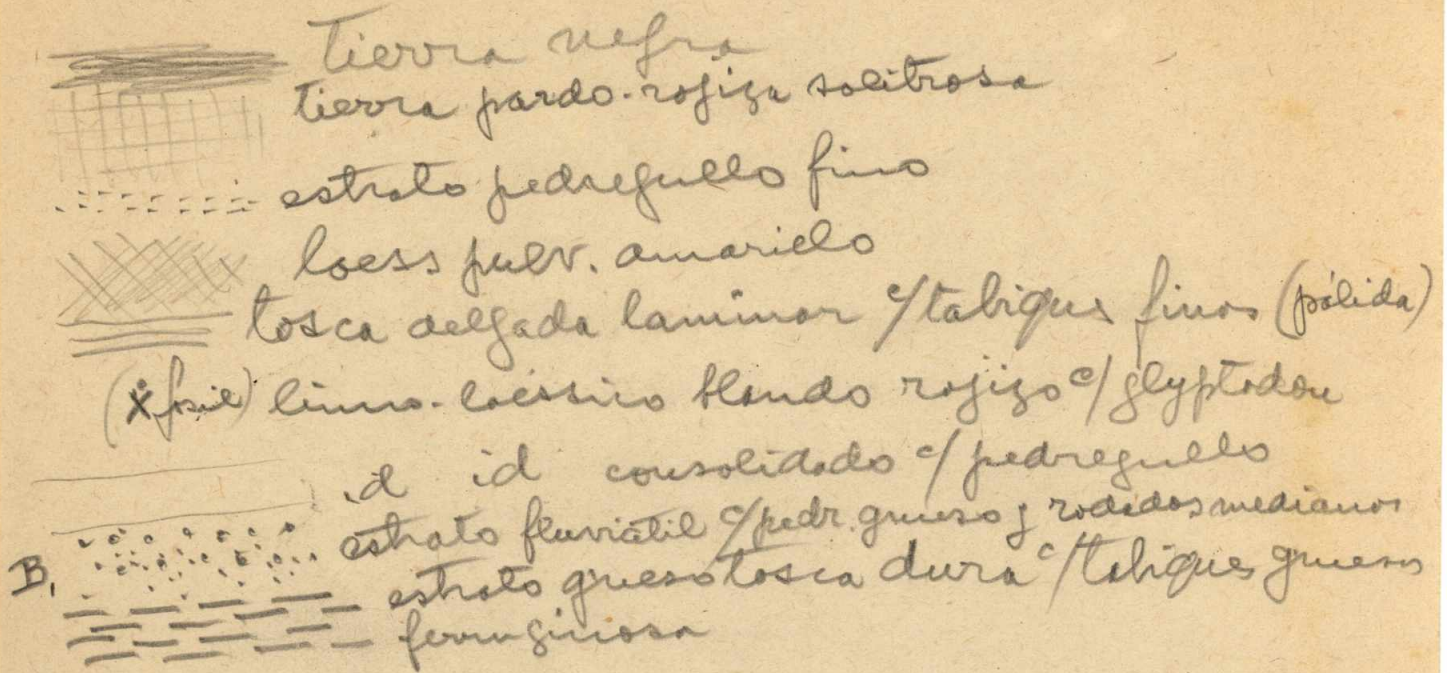 tierra negra
tierra pardo-rojiza salitrosa
estrato pedregullo fino
loess pulv. amarillo
tosca delgada laminar c/tabiques finos (pálida)
(x fósil) limo-loéssico blando rojizo c/ glyptodon
id id consolidado c/ pedregullo
estrato fluviátil c/pedr. grueso y rodados medianos
B, estrato grueso tosca dura c/tabiques gruesos
ferruginosa